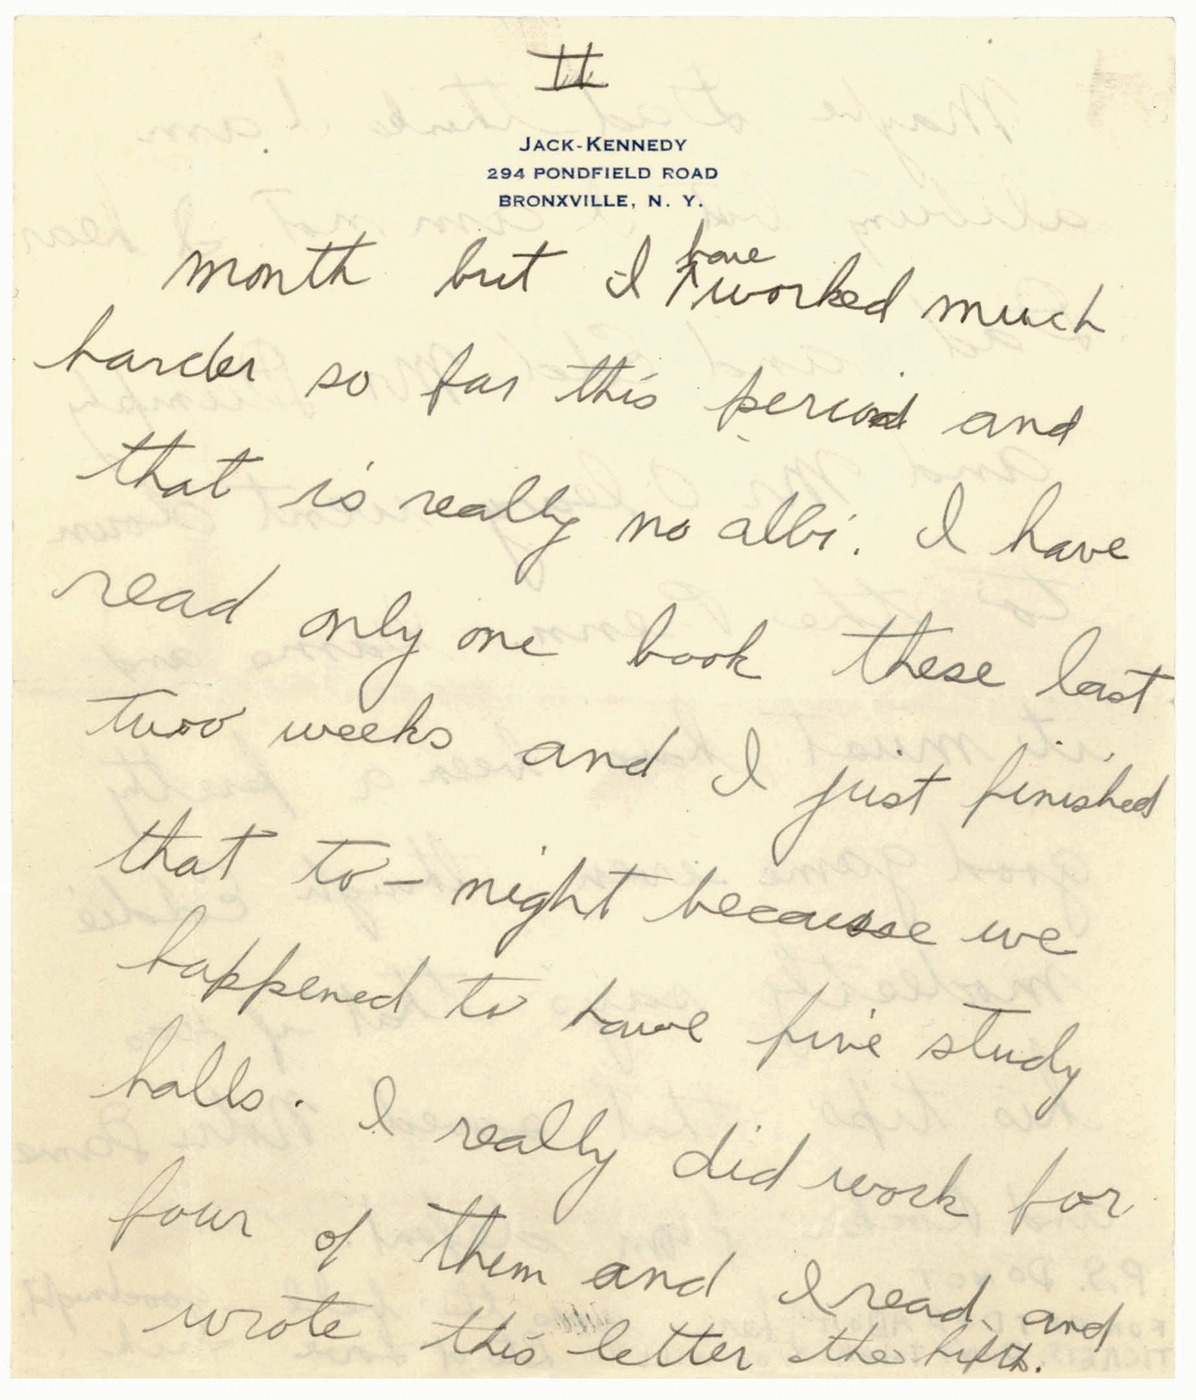 II
JACK-KENNEDY
294 PONDFIELD ROAD
BRONXVILLE, N. Y.
month but I have worked much
harder so far this period and
that is really no albi. I have
read only one book these last
two weeks and I just finished
that to-night because we
happened to have five study
halls. I really did work for
four of them and I read and
wrote this letter the fifth.